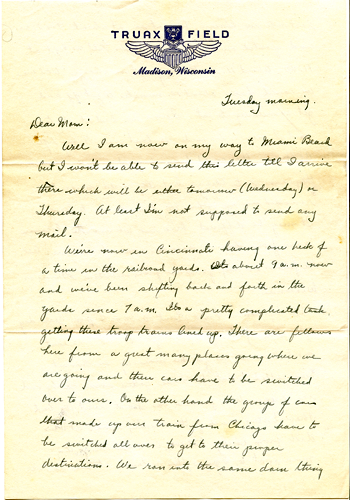 TRUAX FIELD
Madison, Wisconsin
Tuesday morning.
Dear Mom:
Well I am now on my way to Miami Beach
but I won't be able to send this letter till I arrive
there which will be either tomorrow (Wednesday) or
Thursday. At least I'm not supposed to send any
mail.
We're now in Cincinnati having one heck of
a time in the railroad yards. It's about 9 a.m. now
and we've been shifting back and forth in the
yards since 7 a.m. It's a pretty complicated task
getting these troop trains lined up. There are fellows
here from a great many places going where we
are going and their cars have to be switched
over to ours. On the other hand the group of cars
that made up our train from Chicago have to
be switched all over to get to their proper
destinations. We ran into the same darn thing